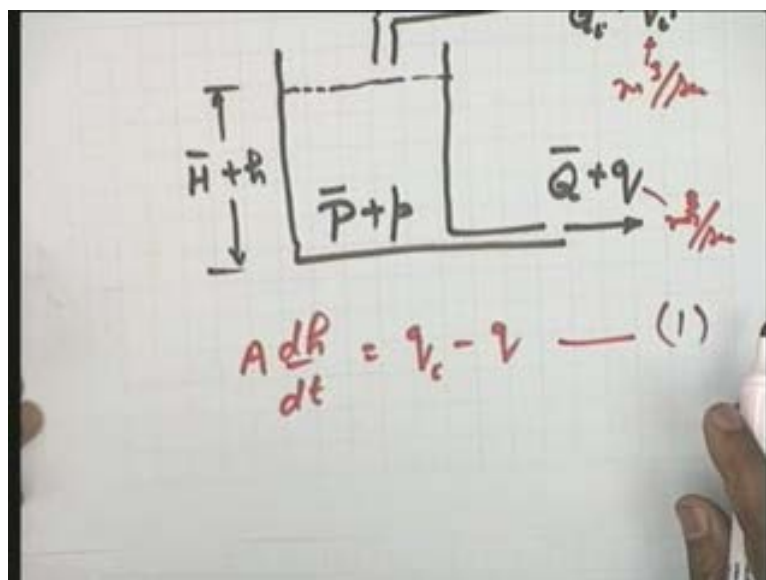 m³/sec
H̅ + h
P̅ + p
Q̅ + q
m³/sec
A dh/dt = qᵢ - q — (1)